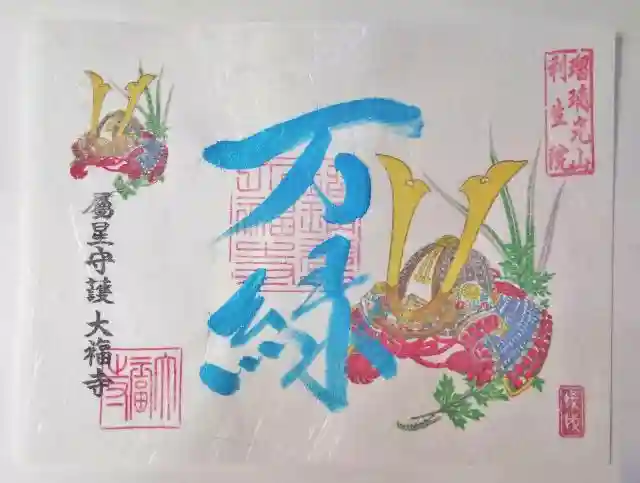 瑠璃光山
利生院
万緑
屬星守護 大福寺
大福寺